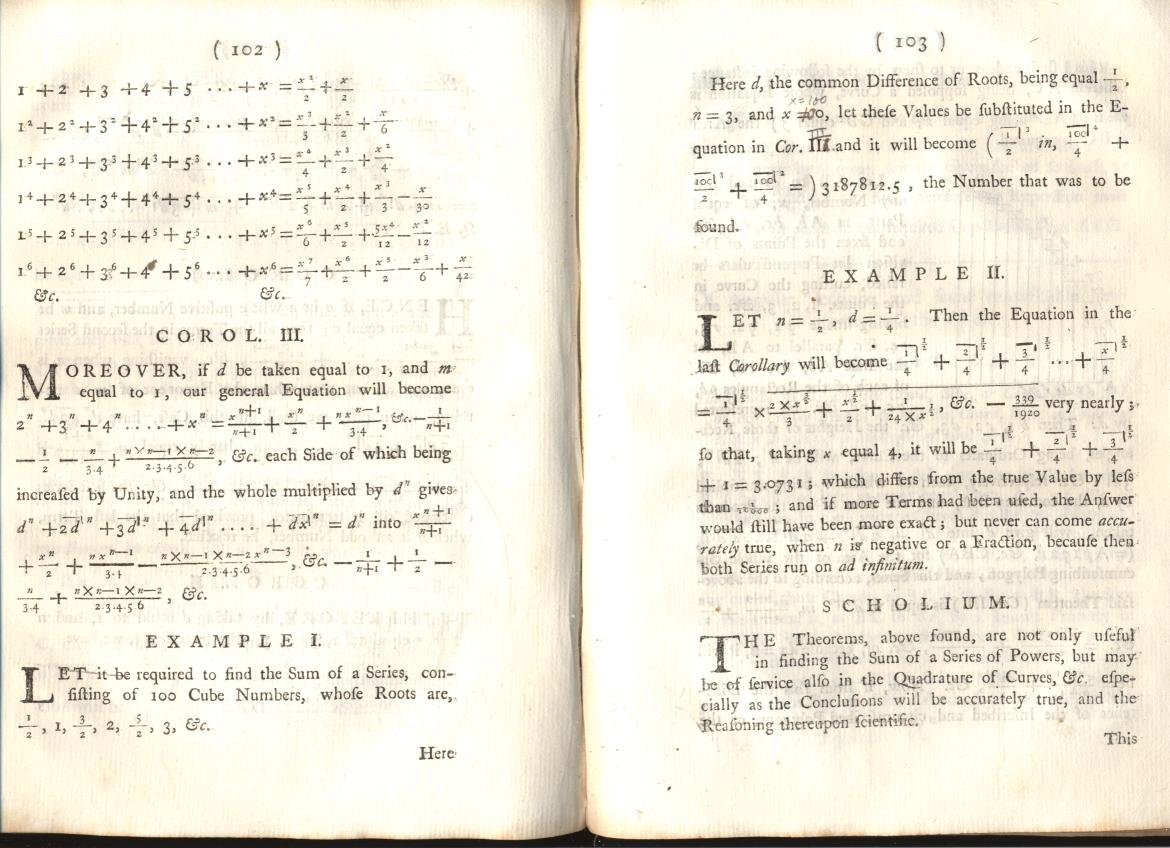 ( 102 )
1 + 2 + 3 + 4 + 5 ... + x = x²/2 + x/2
1² + 2² + 3² + 4² + 5² ... + x² = x³/3 + x²/2 + x/6
1³ + 2³ + 3³ + 4³ + 5³ ... + x³ = x⁴/4 + x³/2 + x²/4
1⁴ + 2⁴ + 3⁴ + 4⁴ + 5⁴ ... + x⁴ = x⁵/5 + x⁴/2 + x³/3 − x/30
1⁵ + 2⁵ + 3⁵ + 4⁵ + 5⁵ ... + x⁵ = x⁶/6 + x⁵/2 + 5x⁴/12 − x²/12
1⁶ + 2⁶ + 3⁶ + 4⁶ + 5⁶ ... + x⁶ = x⁷/7 + x⁶/2 + x⁵/2 − x³/6 + x/42
&c. &c.
COROL. III.
MOREOVER, if d be taken equal to 1, and m
equal to 1, our general Equation will become
2ⁿ + 3ⁿ + 4ⁿ .... + xⁿ = xⁿ⁺¹/n+1 + xⁿ/2 + nxⁿ⁻¹/3.4, &c. − 1/n+1
− 1/2 − n/3.4 + n×n−1×n−2/2.3.4.5.6, &c. each Side of which being
increaſed by Unity, and the whole multiplied by dⁿ gives
dⁿ + 2d|ⁿ + 3d|ⁿ + 4d|ⁿ .... + dx|ⁿ = dⁿ into xⁿ⁺¹/n+1
+ xⁿ/2 + nxⁿ⁻¹/3.4 − n×n−1×n−2xⁿ⁻³/2.3.4.5.6, &c. − 1/n+1 + 1/2 −
n/3.4 + n×n−1×n−2/2.3.4.5.6, &c.
EXAMPLE I.
LET it be required to find the Sum of a Series, con-
ſiſting of 100 Cube Numbers, whoſe Roots are,
1/2, 1, 3/2, 2, 5/2, 3, &c.
Here
( 103 )
Here d, the common Difference of Roots, being equal 1/2,
x=100
n = 3, and x = 100, let theſe Values be ſubſtituted in the E-
quation in Cor. III. and it will become ( 1/2|³ in, 100|⁴/4 +
100|³/2 + 100|²/4 = ) 3187812.5, the Number that was to be
found.
EXAMPLE II.
LET n = 1/2, d = 1/4. Then the Equation in the
laſt Corollary will become 1/4|^1/2 + 2/4|^1/2 + 3/4|^1/2 ... + x/4|^1/2
= 1/4|^1/2 × 2×x^3/2/3 + x^1/2/2 + 1/24×x^1/2, &c. − 339/1920 very nearly;
ſo that, taking x equal 4, it will be 1/4|^1/2 + 2/4|^1/2 + 3/4|^1/2
+ 1 = 3.0731; which differs from the true Value by leſs
than ; and if more Terms had been uſed, the Anſwer
would ſtill have been more exact; but never can come accu-
rately true, when n is negative or a Fraction, becauſe then
both Series run on ad infinitum.
SCHOLIUM.
THE Theorems, above found, are not only uſeful
in finding the Sum of a Series of Powers, but may
be of ſervice alſo in the Quadrature of Curves, &c. eſpe-
cially as the Concluſions will be accurately true, and the
Reaſoning thereupon ſcientific.
This